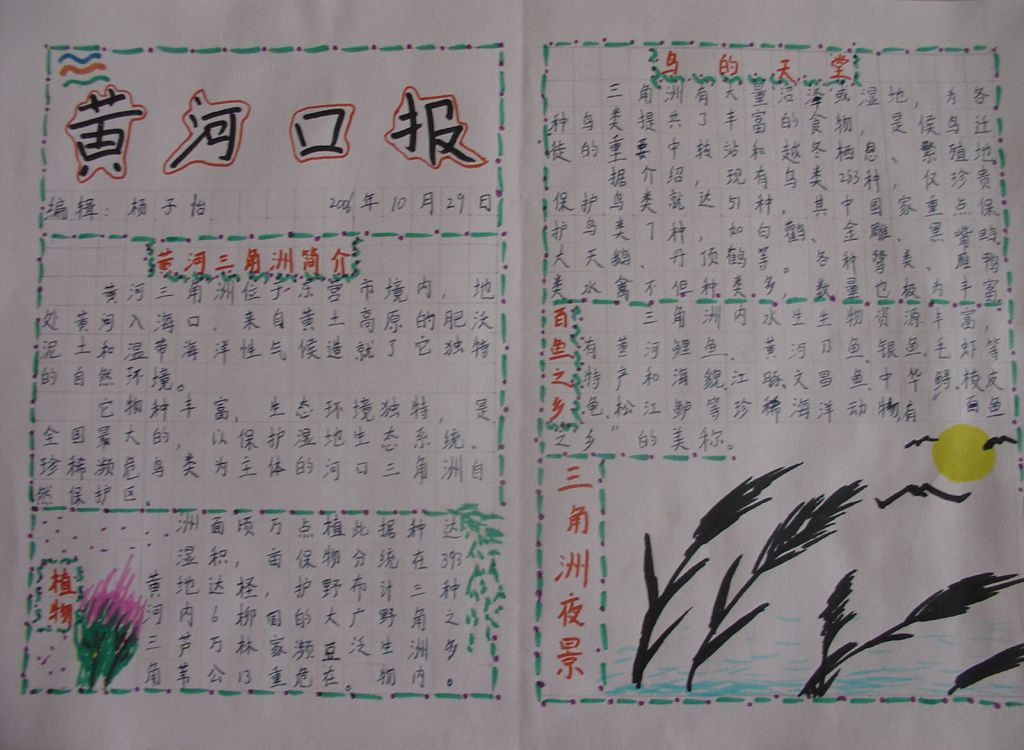 黄河口报
编辑：杨子怡 2006年10月29日
黄河三角洲简介
黄河三角洲位于东营市境内，地
处黄河入海口，来自黄土高原的肥沃
泥土和温带海洋性气候造就了它独特
的自然环境。
它物种丰富，生态环境独特，是
全国最大的，以保护湿地生态系统、
珍稀濒危鸟类为主体的河口三角洲自
然保护区。
植物
黄河三角
洲湿地内芦苇
面积达6万公
顷，柽柳林13
万亩，国家重
点保护的濒危
植物野大豆在
此分布广泛。
据统计野生物
种在三角洲内
达393种之多。
鸟的天堂
三角洲有大量沼泽或湿地，为各
种鸟类提共了丰富的食物，是候鸟迁
徙的重要中转站和越冬栖息、繁殖地
据介绍，现有鸟类283种，仅珍贵
保护鸟类就达51种，其中国家重点保
护鸟类7种，如白鹳、金雕、黑嘴鸥
大天鹅、丹顶鹤等。各种鹭类、雁鸭
类水禽不但种类多，数量也极为丰富
百鱼之乡
三角洲内水生生物资源丰富，
有黄河鲤鱼、黄河刀鱼、银鱼、毛虾等
特产和海貌、江豚、文昌鱼、中华鲟、棱皮
龟、松江鲈等珍稀海洋动物，有“百鱼
之乡”的美称。
三角洲夜景